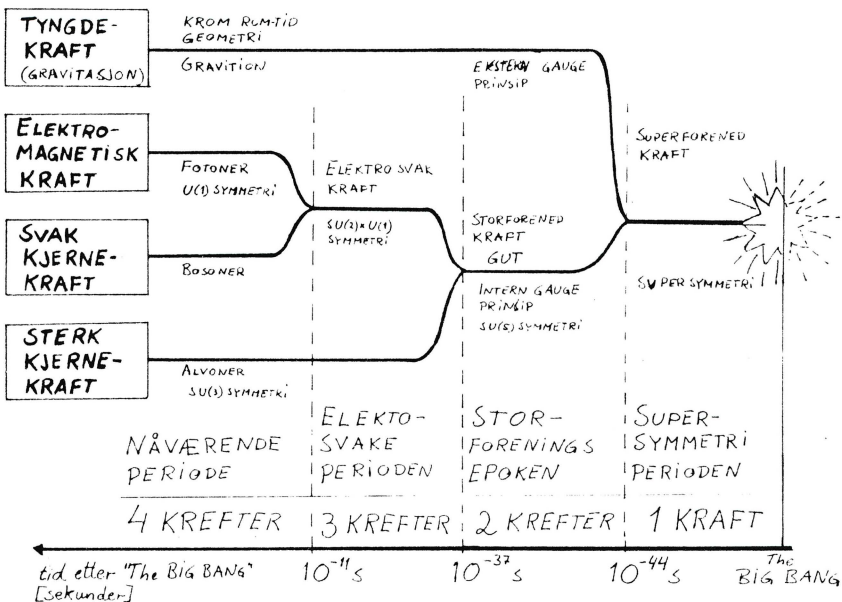 TYNGDE-
KRAFT
(GRAVITASJON)
KROM ROM-TID
GEOMETRI
GRAVITION
EKSTERN GAUGE
PRINSIP
ELEKTRO-
MAGNETISK
KRAFT
FOTONER
U(1) SYMMETRI
ELEKTRO SVAK
KRAFT
SU(2)×U(1)
SYMMETRI
SUPERFORENED
KRAFT
SVAK
KJERNE-
KRAFT
BOSONER
STORFORENED
KRAFT
GUT
INTERN GAUGE
PRINSIP
SU(5) SYMMETRI
SUPERSYMMETRI
STERK
KJERNE-
KRAFT
ALVONER
SU(3) SYMMETRI
NÅVÆRENDE
PERIODE
ELEKTO-
SVAKE
PERIODEN
STOR-
FORENINGS
EPOKEN
SUPER-
SYMMETRI
PERIODEN
4 KREFTER
3 KREFTER
2 KREFTER
1 KRAFT
tid etter "The BIG BANG"
[sekunder]
10⁻¹¹ s
10⁻³⁷ s
10⁻⁴⁴ s
The
BIG BANG